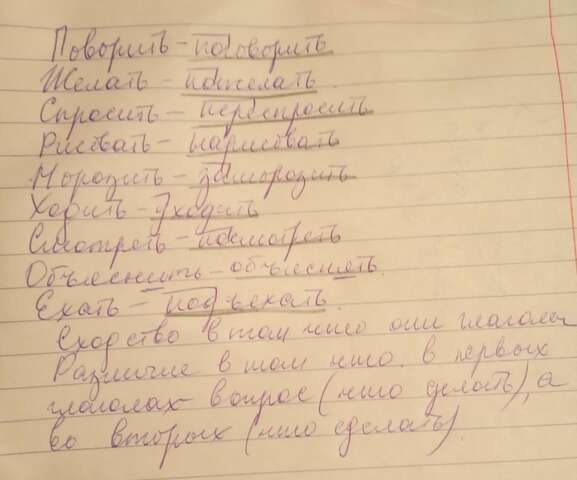 Поворить - поговорить
Желать - пожелать
Спросить - переспросить
Рисовать - нарисовать
Морозить - заморозить
Ходить - уходить
Смотреть - посмотреть
Объяснить - объяснять.
Ехать - подъехать.
Сходство в том что они глаголы
Различие в том что. в первых
глаголах вопрос (что делать), а
во вторых (что сделать).